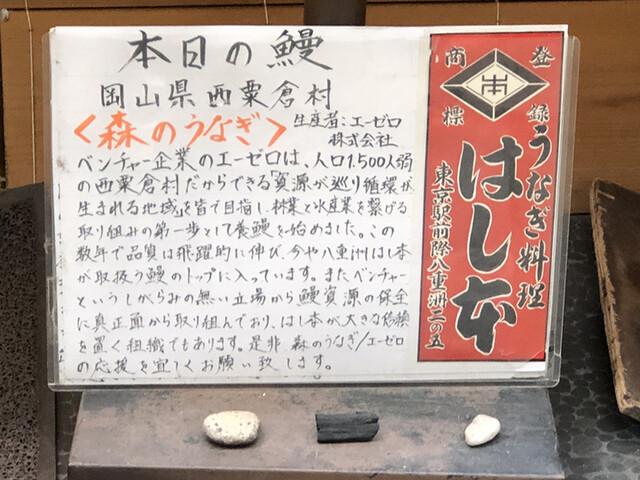 本日の鰻
岡山県西粟倉村
＜森のうなぎ＞
生産者:エーゼロ
株式会社
ベンチャー企業のエーゼロは、人口1,500人弱
の西粟倉村だからできる「資源が巡り循環が
生まれる地域」を皆で目指し、林業と水産業を繋げる
取り組みの第一歩として養鰻を始めました。この
数年で品質は飛躍的に伸び、今や八重洲はし本
が取扱う鰻のトップに入っています。またベンチャー
というしがらみの無い立場から鰻資源の保全
に真正面から取り組んでおり、はし本が大きな信頼
を置く組織でもあります。是非 森のうなぎ/エーゼロ
の応援を宜しくお願い致します。
登録
商標
本
うなぎ料理
はし本
東京駅前際八重洲二の五